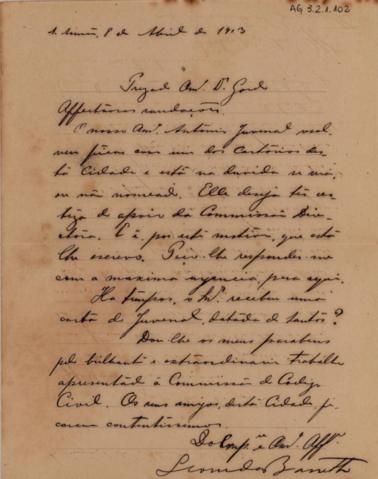 AG 3.2.1.102
S. Simão, 8 de Abril de 1913
Prezado Am.º Dr. Gordo
Affectuosas saudações.
O nosso Am.º Antonio Juvenal resol-
veu ficar com um dos Cartorios des-
ta Cidade e está na duvida se será
ou não nomeado. Elle deseja ter cer-
teza do apoio da Commissão Dire-
ctora. E é, por este motivo, que esta
lhe escrevo. Peço-lhe responder-me
com a maxima urgencia, para aqui.
Ha tempos, o Sr. recebeu uma
carta do Juvenal, datada de Santos?
Dou-lhe os meus parabens
pelo brilhante e extraordinario trabalho
apresentado á Commissão do Codigo
Civil. Os seus amigos, desta Cidade, fi-
caram contentissimos.
Do Comp.º e Am.º Aff.º
Leonidas Barretto